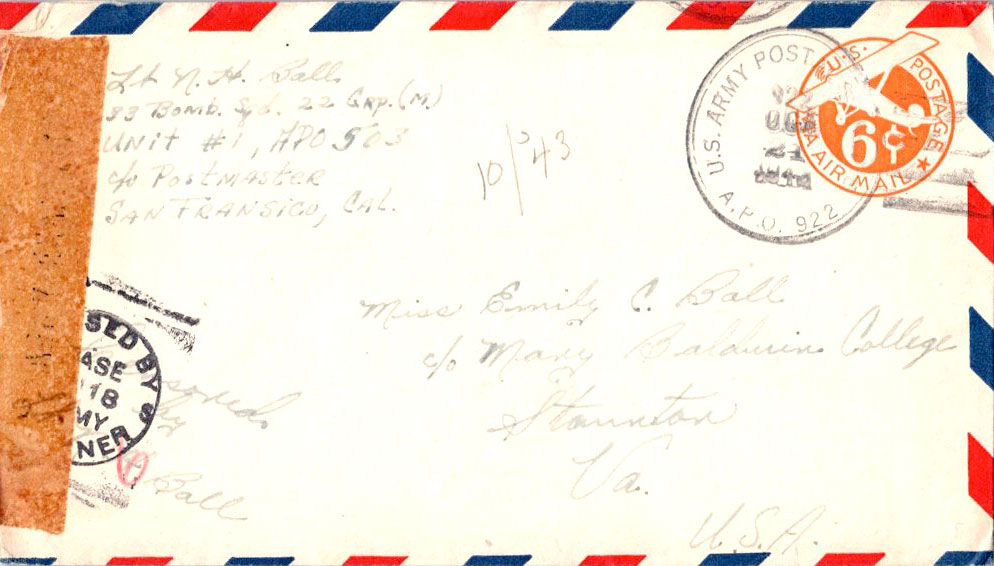 Lt N. H. Ball
33 Bomb. Sqd. 22 Grp. (M)
Unit #1, APO 503
c/o Postmaster
San Fransico, Cal.
10/ '43
U.S. ARMY POST
OCT
21
A.P.O. 922
U.S. POSTAGE
6¢
VIA AIR MAIL
Miss Emily C. Ball
c/o Mary Baldwin College
Staunton
Va.
U.S.A.
SED BY S
ASE
118
MY
NER
Censored
by
Ball